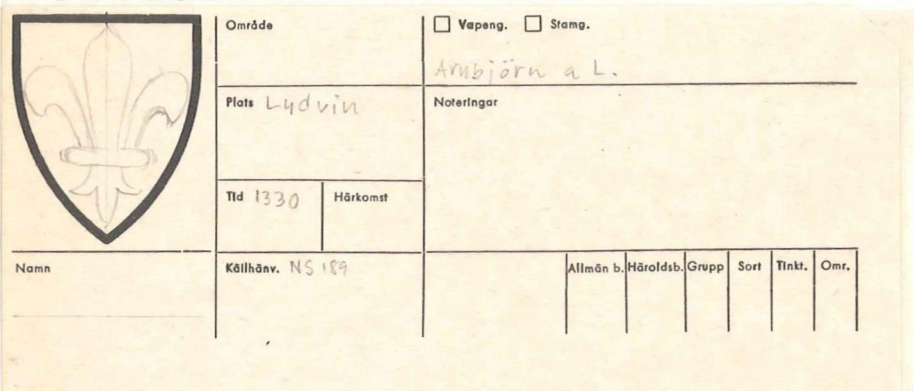 Område
☐ Vapeng. ☐ Stamg.
Arnbjörn a L.
Plats Lydvin
Noteringar
Tid 1330
Härkomst
Namn
Källhänv. NS 189
Allmän b. Häroldsb. Grupp Sort Tinkt. Omr.